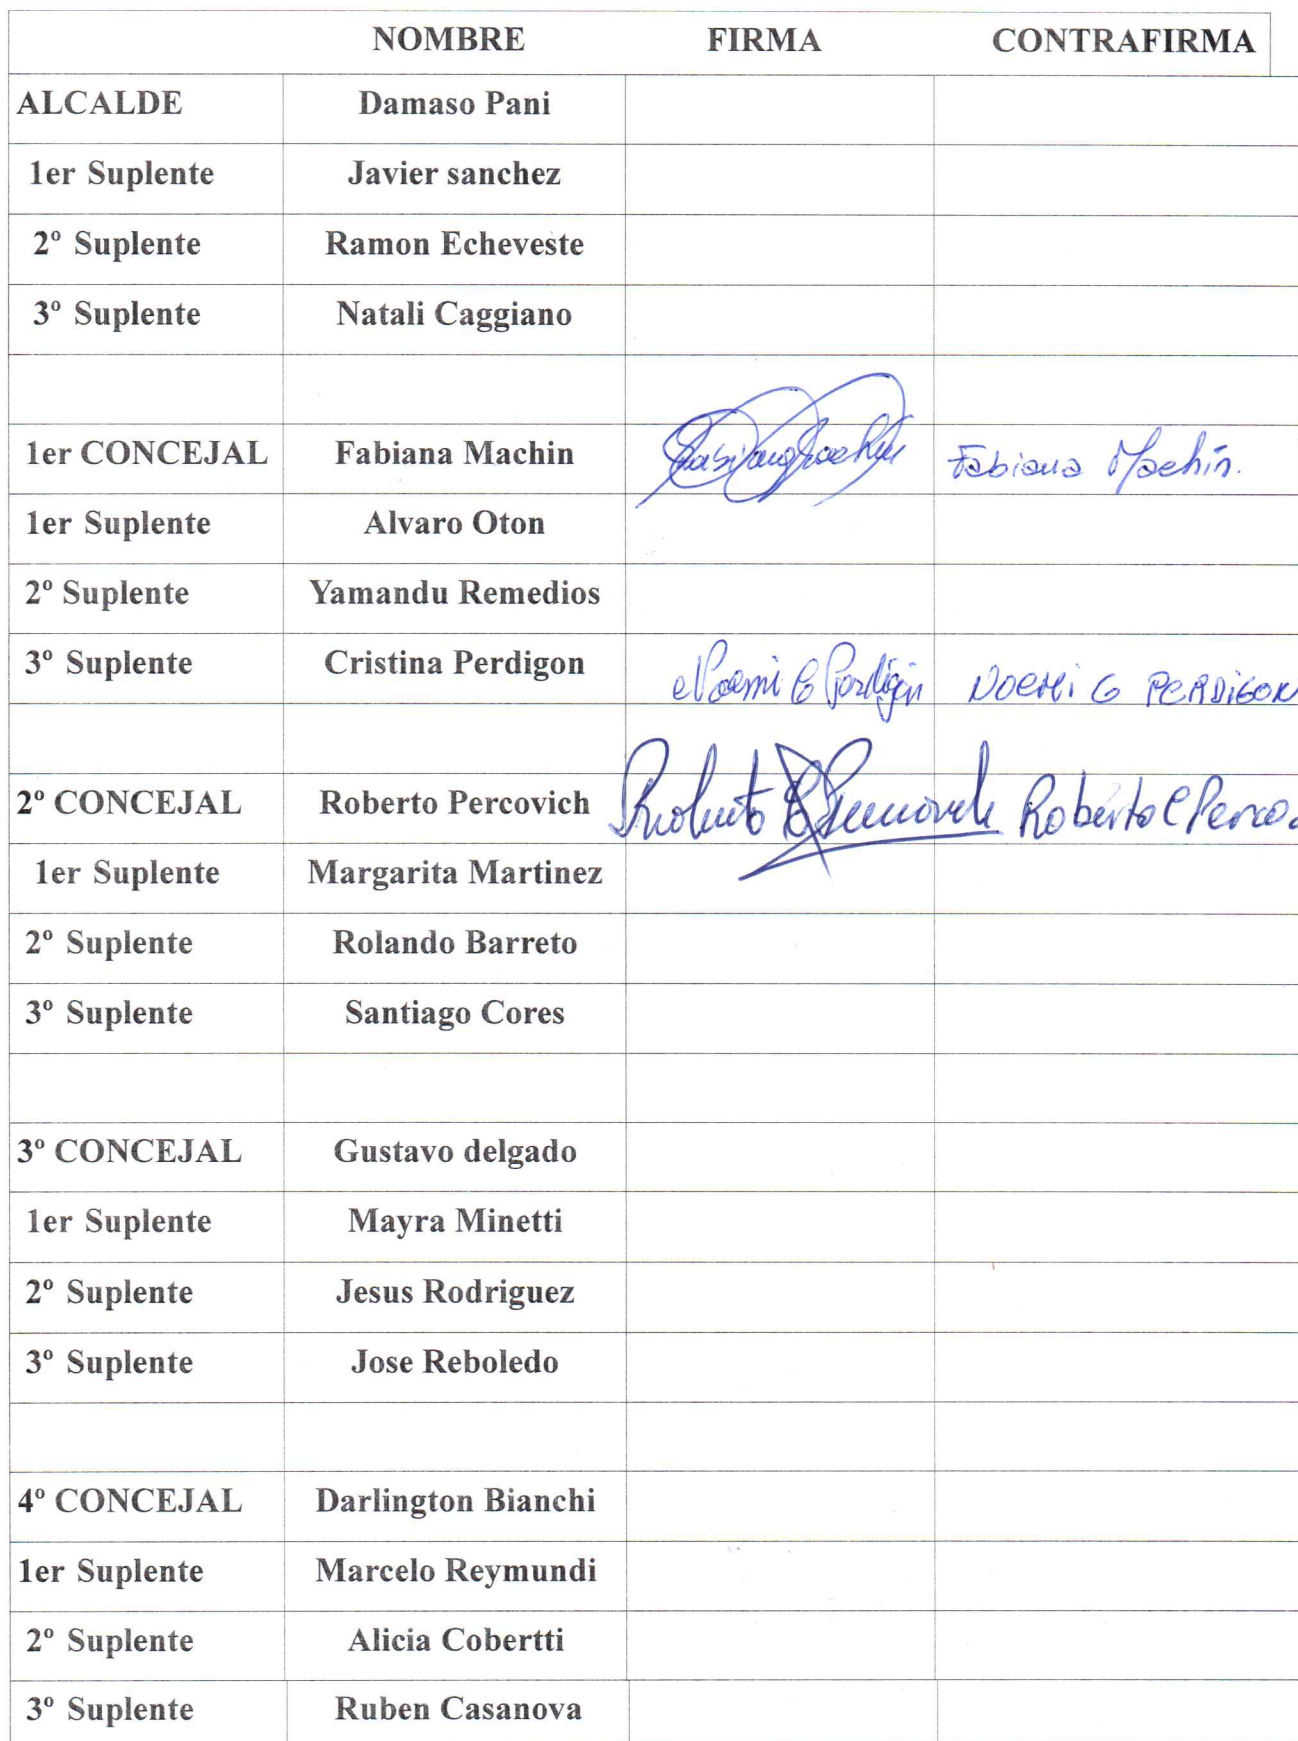 NOMBRE FIRMA CONTRAFIRMA
ALCALDE Damaso Pani
1er Suplente Javier sanchez
2º Suplente Ramon Echeveste
3º Suplente Natali Caggiano
1er CONCEJAL Fabiana Machin Fabiana Machín.
1er Suplente Alvaro Oton
2º Suplente Yamandu Remedios
3º Suplente Cristina Perdigon Noemi C Perdigón NOEMi C PERDiGON
2º CONCEJAL Roberto Percovich Roberto C Perco
1er Suplente Margarita Martinez
2º Suplente Rolando Barreto
3º Suplente Santiago Cores
3º CONCEJAL Gustavo delgado
1er Suplente Mayra Minetti
2º Suplente Jesus Rodriguez
3º Suplente Jose Reboledo
4º CONCEJAL Darlington Bianchi
1er Suplente Marcelo Reymundi
2º Suplente Alicia Cobertti
3º Suplente Ruben Casanova